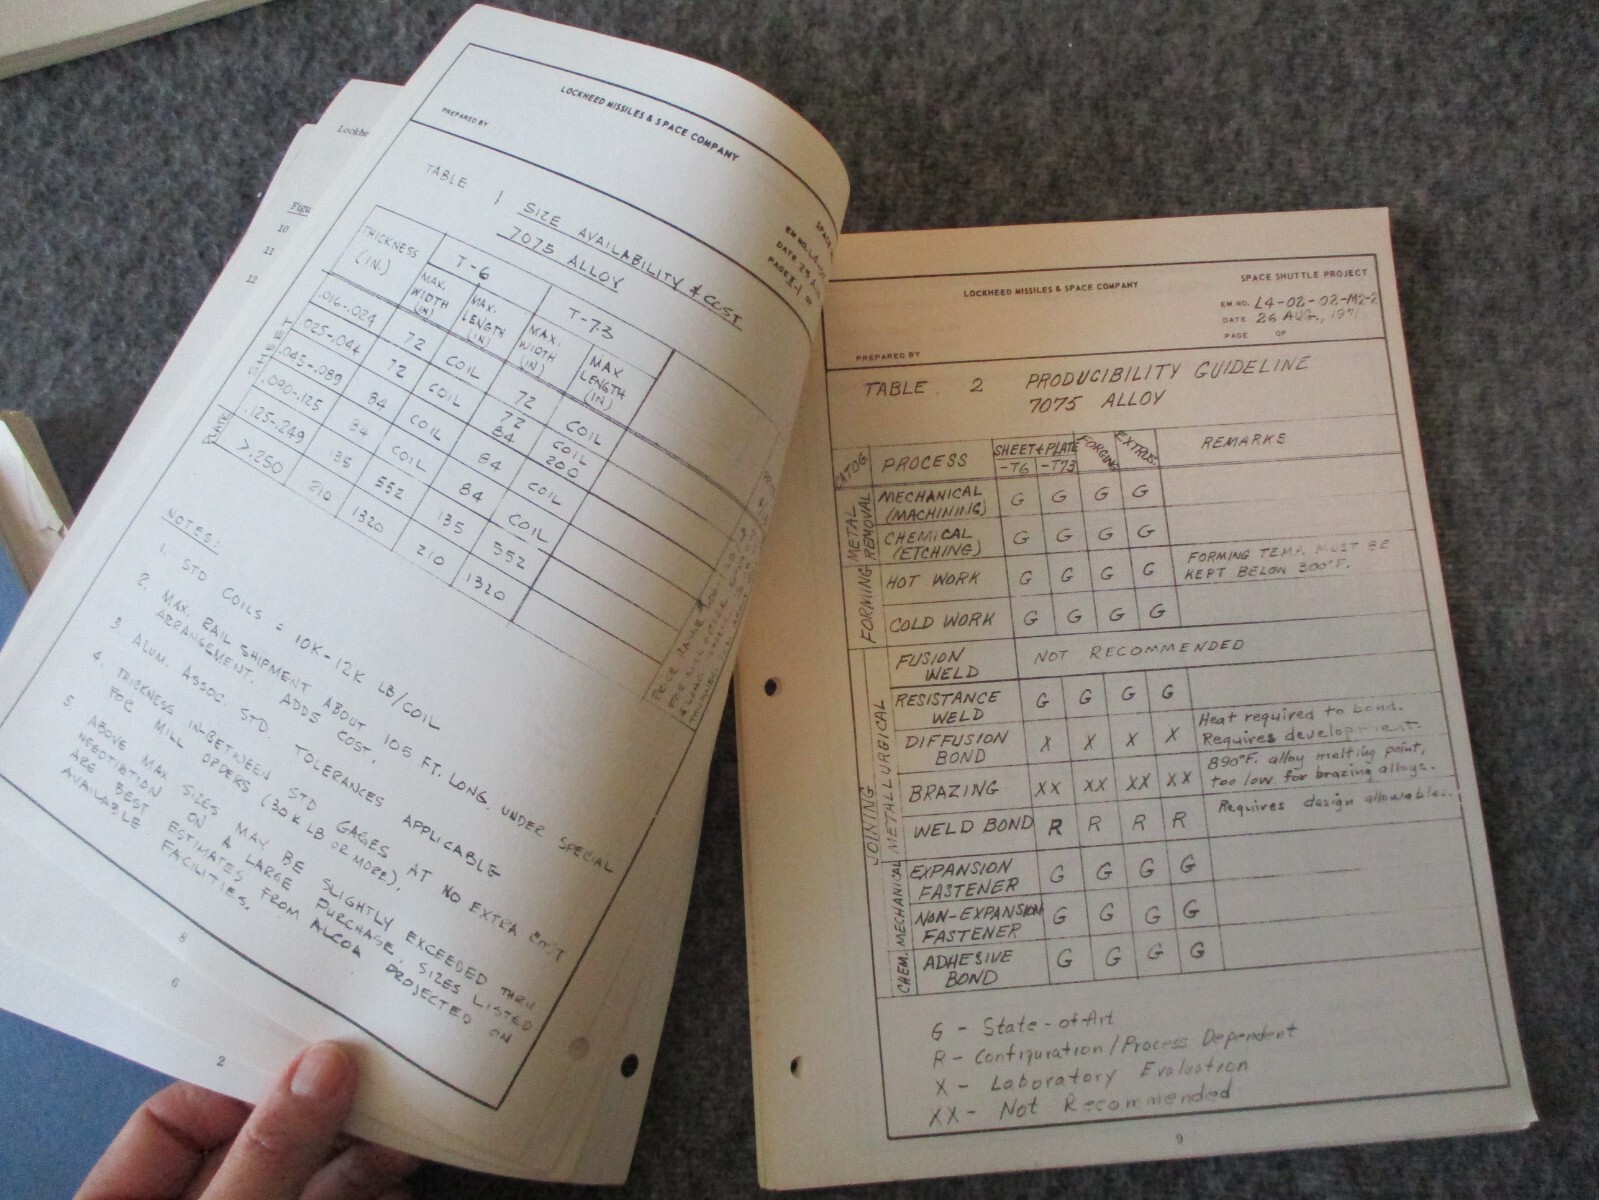 Lockhe
Figu
10
11
12
LOCKHEED MISSILES & SPACE COMPANY
PREPARED BY
SPACE
EM NO. L4-02
DATE 25 AUG
PAGE
TABLE 1 SIZE AVAILABILITY & COST
7075 ALLOY
THICKNESS (IN.) T-6 T-73
MAX. WIDTH (IN) MAX. LENGTH (IN) MAX. WIDTH (IN) MAX LENGTH (IN)
SHEET
.016-.024 72 COIL 72 COIL
.025-.044 72 COIL 72 84 COIL 200
.045-.089 84 COIL 84 COIL
.090-.125 84 COIL 84 COIL
.125-.249 135 552 135 552
PLATE
>.250 210 1320 210 1320
NOTES:
1. STD COILS = 10K-12K LB/COIL
2. MAX. RAIL SHIPMENT ABOUT 105 FT. LONG. UNDER SPECIAL
ARRANGEMENT. ADDS COST.
3. ALUM. ASSOC. STD. TOLERANCES APPLICABLE
4. THICKNESS IN-BETWEEN STD GAGES AT NO EXTRA COST
FOR MILL ORDERS (30K LB OR MORE).
5. ABOVE MAX SIZES MAY BE SLIGHTLY EXCEEDED THRU
NEGOTIATION ON A LARGE PURCHASE. SIZES LISTED
ARE BEST ESTIMATES FROM ALCOA PROJECTED ON
AVAILABLE FACILITIES.
8
6
2
LOCKHEED MISSILES & SPACE COMPANY
SPACE SHUTTLE PROJECT
EM NO. L4-02-02-M2-2
DATE 26 AUG., 1971
PAGE OF
PREPARED BY
TABLE 2 PRODUCIBILITY GUIDELINE
7075 ALLOY
CATOG. PROCESS SHEET & PLATE FORGING EXTRUS. REMARKS
-T6 -T73
METAL REMOVAL
MECHANICAL (MACHINING) G G G G
CHEMICAL (ETCHING) G G G G
FORMING
HOT WORK G G G G FORMING TEMP. MUST BE KEPT BELOW 300°F.
COLD WORK G G G G
JOINING
METALLURGICAL
FUSION WELD NOT RECOMMENDED
RESISTANCE WELD G G G G
DIFFUSION BOND X X X X Heat required to bond. Requires development.
BRAZING XX XX XX XX 890°F. alloy melting point, too low for brazing alloys.
WELD BOND R R R R Requires design allowables.
MECHANICAL
EXPANSION FASTENER G G G G
NON-EXPANSION FASTENER G G G G
CHEM.
ADHESIVE BOND G G G G
G - State-of-Art
R - Configuration/Process Dependent
X - Laboratory Evaluation
XX - Not Recommended
9